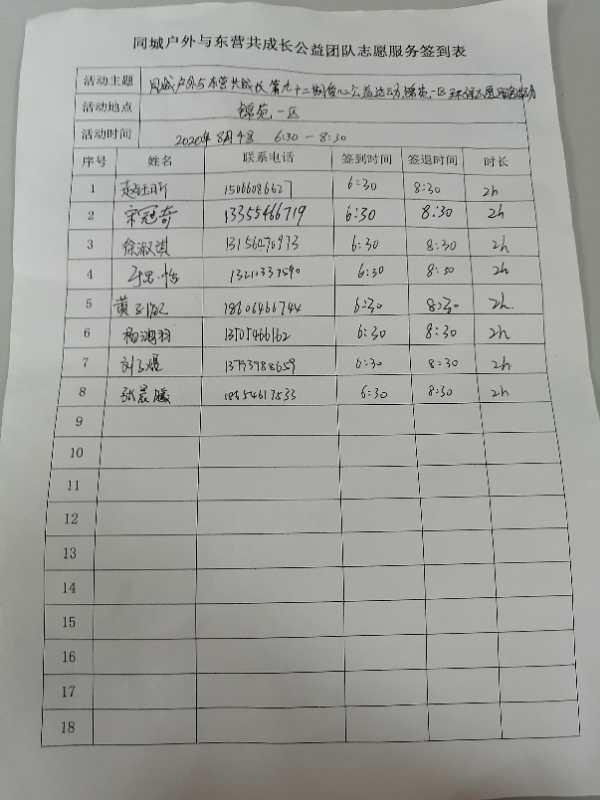 同城户外与东营共成长公益团队志愿服务签到表
活动主题 同城户外与东营共成长第九十二期爱心公益活动锦苑一区
活动地点 锦苑一区
活动时间 2020年8月4日 6:30-8:30
序号 姓名 联系电话 签到时间 签退时间 时长
1 6:30 8:30 2h
2 宋冠奇 13355466719 6:30 8:30 2h
3 徐淑淇 6:30 8:30 2h
4 6:30 8:30 2h
5 黄 18606466744 6:30 8:30 2h
6 杨鸿羽 13705466162 6:30 8:30 2h
7 刘 6:30 8:30 2h
8 张晨曦 18654617533 6:30 8:30 2h
9
10
11
12
13
14
15
16
17
18